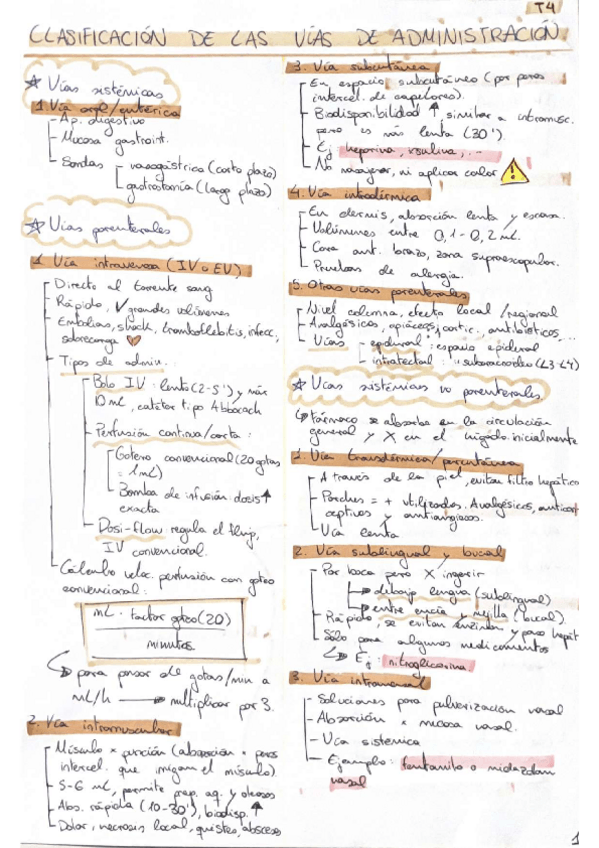 T4
CLASIFICACIÓN DE LAS VÍAS DE ADMINISTRACIÓN
Vías sistémicas
1. Vía oral/entérica
- Ap. digestivo
- Mucosa gastroint.
- Sondas
vasogástrica (corto plazo)
gastrostomía (largo plazo)
Vías parenterales
1. Vía intravenosa (IV o EV)
Directo al torrente sang
Rápido, grandes volúmenes
Embolias, shock, tromboflebitis, infecc,
sobrecarga
Tipos de admin.
Bolo IV: lento (2-5') y máx
10 mL, catéter tipo Abbocach
Perfusión continua/corta:
Gotero convencional (20 gotas
= 1 mL)
Bomba de infusión: dosis ↑
exacta
Dosi-flow regula el flujo,
IV convencional.
Cálculo veloc. perfusión con goteo
convencional:
mL · factor goteo (20)
minutos
para pasar de gotas/min a
mL/h → multiplicar por 3.
2. Vía intramuscular
Músculo × punción (absorción × poros
intercel. que irrigan el músculo).
5-6 mL, permite prep. aq. y oleosos
Abs. rápida (10-30'), biodisp. ↑
Dolor, necrosis local, quistes, abscesos
3. Vía subcutánea
En espacio subcutáneo (por poros
intercel. de capilares).
Biodisponibilidad ↑ similar a intramusc.
pero es más lenta (30').
Ej: heparina, insulina, ...
No masajear, ni aplicar calor
4. Vía intradérmica
En dermis, absorción lenta y escasa.
Volúmenes entre 0,1 - 0,2 mL.
Cara ant. brazo, zona supraescapular.
Pruebas de alergia.
5. Otras vías parenterales
Nivel columna, efecto local / regional
Analgésicos, opiáceos, cortic., antibióticos, ...
Vías
- epidural: espacio epidural
- intratectal: " subaracnoideo (L3-L4)
Vías sistémicas no parenterales
fármaco se absorbe en la circulación
general y X en el hígado inicialmente
1. Vía transdérmica/percutánea
A través de la piel, evitan filtro hepático
Parches = + utilizados. Analgésicos, anticon
ceptivos y antianginosos.
Vía lenta
2. Vía sublingual y bucal
Por boca pero X ingerir
debajo lengua (sublingual)
entre encía y mejilla (bucal).
Rápido, se evitan enzimas y paso hepát
Sólo para algunos medicamentos
Ej: nitroglicerina.
3. Vía intranasal
- Soluciones para pulverización nasal
- Absorción × mucosa nasal.
- Vía sistémica
- Ejemplo: fentanilo o midazolam
nasal
1